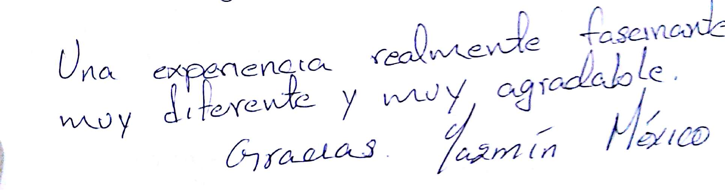 Una experiencia realmente fascinante
muy diferente y muy agradable.
Gracias. Yazmín México